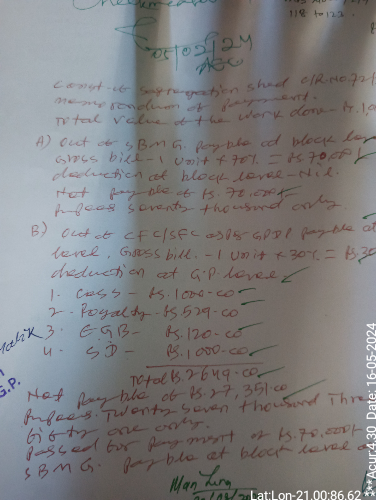 118 to 122.
05/02/24
AEO
Const. of Segregation shed C/R.No 72/
memorandum of payment.
Total value of the work done- M.1,0
A) Out of SBMG. payable at block lev
Gross bill - 1 Unit x 70% = Rs 70,000/
deduction at block level - Nil.
Net payable of Rs. 70,000/-
Rupees seventy thousand only.
B) Out of CFC/SFC payable at
level. Gross bill. - 1 Unit x 30% = Rs.30
deduction at G.P. level
1. Cess - Rs. 1000-00
2- Royalty - Rs 529-00
3. EGB - Rs. 120-00
4. SD - Rs. 1000-00
Total Rs 2649-00
Net payable of Rs. 27,351-00
Rupees Twenty seven thousand Three
fifty one only.
passed for payment of Rs. 70,000/-
SBMG. payable at block level a
G.P.
Lat:Lon-21.00:86.62
***Acur:4.30 Date: 16-05-2024